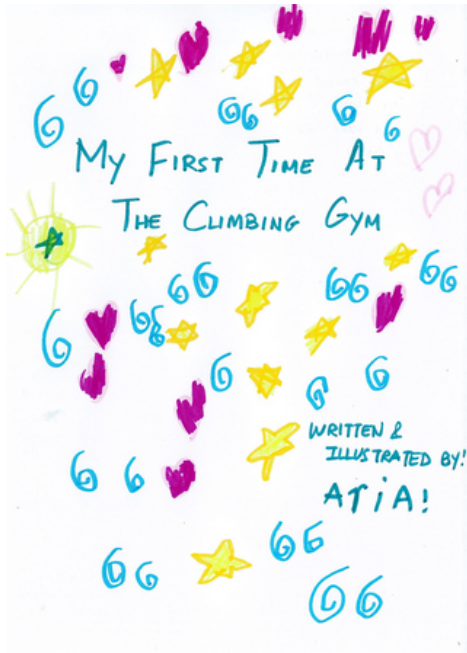 My First Time At
The Climbing Gym
WRITTEN &
ILLUSTRATED BY!
ARiA!